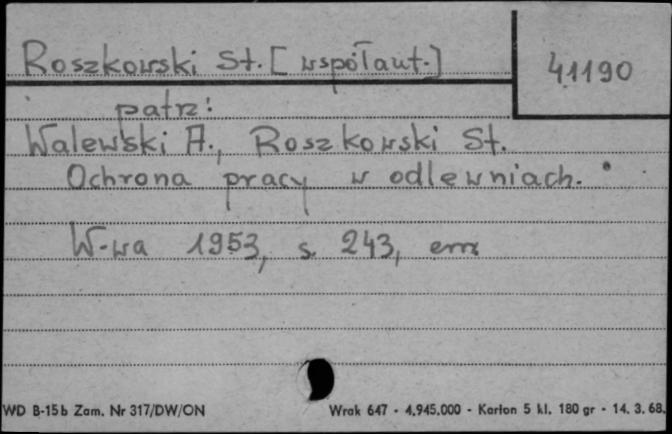 Roszkowski St. [współaut.]
41190
patrz:
Walewski A., Roszkowski St.
Ochrona pracy w odlewniach.
W-wa 1953, s. 243,
WD B-15b Zam. Nr 317/DW/ON
Wrak 647 - 4.945.000 - Karton 5 kl. 180 gr - 14. 3. 68.